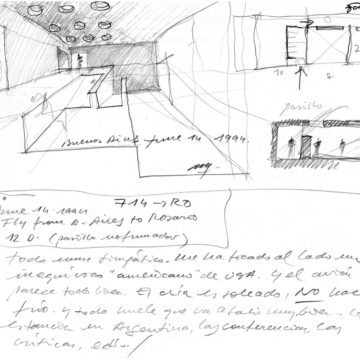 10
pasillo
Buenos Aires June 14. 1994.
714 → RO
June 14. 1994
Fly from B. Aires to Rosario
12 D. (pasillo no fumador)
todo muy simpático. Me ha tocado al lado un
inequívoco "americano" de USA. y el avión
parece todo bien. El día es soleado, NO hace
frío. y todo huele que va a salir muy bien. La
estancia en Argentina, las conferencias, las
críticas,